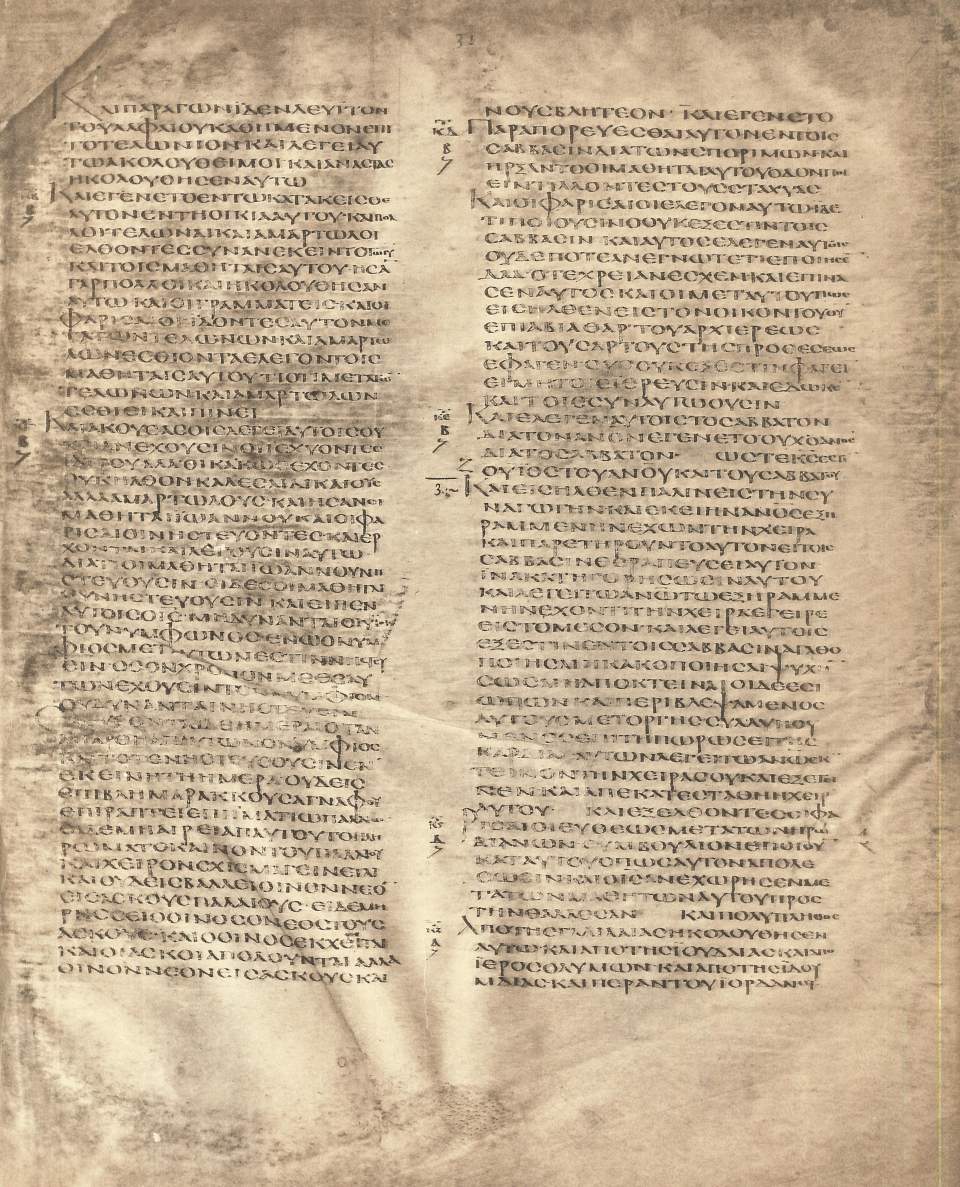 ΚΑΙΠΑΡΑΓΩΝΙΔΕΝΛΕΥΙΤΟΝ
ΤΟΥΑΛΦΑΙΟΥΚΑΘΗΜΕΝΟΝΕΠΙ
ΤΟΤΕΛΩΝΙΟΝΚΑΙΛΕΓΕΙΑΥ
ΤΩΑΚΟΛΟΥΘΕΙΜΟΙΚΑΙΑΝΑϹΤΑϹ
ΗΚΟΛΟΥΘΗϹΕΝΑΥΤΩ
ΚΑΙΕΓΕΝΕΤΟΕΝΤΩΚΑΤΑΚΕΙϹΘΕ
ΑΥΤΟΝΕΝΤΗΟΙΚΙΑΑΥΤΟΥΚΑΙΠΟΛ
ΛΟΙΤΕΛΩΝΑΙΚΑΙΑΜΑΡΤΩΛΟΙ
ΕΛΘΟΝΤΕϹϹΥΝΑΝΕΚΕΙΝΤΟΤΩΙΥ
ΚΑΙΤΟΙϹΜΑΘΗΤΑΙϹΑΥΤΟΥ·ΗϹΑ
ΓΑΡΠΟΛΛΟΙΚΑΙΗΚΟΛΟΥΘΗϹΑΝ
ΑΥΤΩΚΑΙΟΙΓΡΑΜΜΑΤΕΙϹΚΑΙΟΙ
ΦΑΡΙϹΑΙΟΙΙΔΟΝΤΕϹΑΥΤΟΝΜΕ
ΤΑΤΩΝΤΕΛΩΝΩΝΚΑΙΑΜΑΡΤΩ
ΛΩΝΕϹΘΙΟΝΤΑΕΛΕΓΟΝΤΟΙϹ
ΜΑΘΗΤΑΙϹΑΥΤΟΥΤΙΟΤΙΜΕΤΑΤΩ
ΤΕΛΩΝΩΝΚΑΙΑΜΑΡΤΩΛΩΝ
ΕϹΘΙΕΙΚΑΙΠΙΝΕΙ
ΚΑΙΑΚΟΥϹΑϹΟΙϹΛΕΓΕΙΑΥΤΟΙϹΟΥ
ΧΡΙΑΝΕΧΟΥϹΙΝΟΙΙϹΧΥΟΝΤΕϹ
ΙΑΤΡΟΥΑΛΛΑΟΙΚΑΚΩϹΕΧΟΝΤΕϹ
ΟΥΚΗΛΘΟΝΚΑΛΕϹΑΙΔΙΚΑΙΟΥϹ
ΑΛΛΑΑΜΑΡΤΩΛΟΥϹΚΑΙΗϹΑΝΟΙ
ΜΑΘΗΤΑΙΙΩΑΝΝΟΥΚΑΙΟΙΦΑ
ΡΙϹΑΙΟΙΝΗϹΤΕΥΟΝΤΕϹΚΑΙΕΡ
ΧΟΝΤΑΙΚΑΙΛΕΓΟΥϹΙΝΑΥΤΩ
ΔΙΑΤΙΟΙΜΑΘΗΤΑΙΙΩΑΝΝΟΥΝΗ
ϹΤΕΥΟΥϹΙΝΟΙΔΕϹΟΙΜΑΘΗΤΑΙ
ΟΥΝΗϹΤΕΥΟΥϹΙΝΚΑΙΕΙΠΕΝ
ΑΥΤΟΙϹΟΙϹ·ΜΗΔΥΝΑΝΤΑΙΟΙΥΙΟΙ
ΤΟΥΝΥΜΦΩΝΟϹΕΝΩΟΝΥΜ
ΦΙΟϹΜΕΤΑΥΤΩΝΕϹΤΙΝΝΗϹΤΕΥ
ΕΙΝΟϹΟΝΧΡΟΝΟΝΜΕΘΕΑΥ
ΤΩΝΕΧΟΥϹΙΝΤΟΝΝΥΜΦΙΟΝ
ΟΥΔΥΝΑΝΤΑΙΝΗϹΤΕΥΕΙΝ
ΕΛΕΥϹΟΝΤΑΙΔΕΗΜΕΡΑΙΟΤΑΝ
ΑΠΑΡΘΗΑΠΑΥΤΩΝΟΝΥΜΦΙΟϹ
ΚΑΙΤΟΤΕΝΗϹΤΕΥϹΟΥϹΙΝΕΝ
ΕΚΕΙΝΗΤΗΗΜΕΡΑΟΥΔΕΙϹ
ΕΠΙΒΛΗΜΑΡΑΚΚΟΥϹΑΓΝΑΦΟΥ
ΕΠΙΡΑΠΤΕΙΕΠΙΙΜΑΤΙΩΠΑΛΑΙΩ
ΕΙΔΕΜΗΑΙΡΕΙΑΠΑΥΤΟΥΤΟΠΛΗ
ΡΩΜΑΤΟΚΑΙΝΟΝΤΟΥΠΑΛΑΙΟΥ
ΚΑΙΧΕΙΡΟΝϹΧΙϹΜΑΓΕΙΝΕΤΑΙ
ΚΑΙΟΥΔΕΙϹΒΑΛΛΕΙΟΙΝΟΝΝΕΟ
ΕΙϹΑϹΚΟΥϹΠΑΛΑΙΟΥϹ·ΕΙΔΕΜΗ
ΡΗϹϹΕΙΟΟΙΝΟϹΟΝΕΟϹΤΟΥϹ
ΑϹΚΟΥϹ·ΚΑΙΟΟΙΝΟϹΕΚΧΕΙΤΑΙ
ΚΑΙΟΙΑϹΚΟΙΑΠΟΛΟΥΝΤΑΙΑΛΛΑ
ΟΙΝΟΝΝΕΟΝΕΙϹΑϹΚΟΥϹΚΑΙ
ΝΟΥϹΒΛΗΤΕΟΝ·ΚΑΙΕΓΕΝΕΤΟ
ΠΑΡΑΠΟΡΕΥΕϹΘΑΙΑΥΤΟΝΕΝΤΟΙϹ
ϹΑΒΒΑϹΙΝΔΙΑΤΩΝϹΠΟΡΙΜΩΝΚΑΙ
ΗΡΞΑΝΤΟΟΙΜΑΘΗΤΑΙΑΥΤΟΥΟΔΟΝΠΟΙ
ΕΙΝΤΙΛΛΟΝΤΕϹΤΟΥϹϹΤΑΧΥΑϹ
ΚΑΙΟΙΦΑΡΙϹΑΙΟΙΕΛΕΓΟΝΑΥΤΩΙΔΕ
ΤΙΠΟΙΟΥϹΙΝΟΟΥΚΕΞΕϹΤΙΝΤΟΙϹ
ϹΑΒΒΑϹΙΝΚΑΙΑΥΤΟϹΕΛΕΓΕΝΑΥΤΟΙϹ
ΟΥΔΕΠΟΤΕΑΝΕΓΝΩΤΕΤΙΕΠΟΙΗϹΕ
ΔΑΔΟΤΕΧΡΕΙΑΝΕϹΧΕΝΚΑΙΕΠΙΝΑ
ϹΕΝΑΥΤΟϹΚΑΙΟΙΜΕΤΑΥΤΟΥΠΩϹ
ΕΙϹΗΛΘΕΝΕΙϹΤΟΝΟΙΚΟΝΤΟΥΘΥ
ΕΠΙΑΒΙΑΘΑΡΤΟΥΑΡΧΙΕΡΕΩϹ
ΚΑΙΤΟΥϹΑΡΤΟΥϹΤΗϹΠΡΟϹΕϹΕΩϹ
ΕΦΑΓΕΝΟΥϹΟΥΚΕΞΕϹΤΙΝΦΑΓΕΙ
ΕΙΜΗΤΟΙϹΙΕΡΕΥϹΙΝΚΑΙΕΔΩΚΕ
ΚΑΙΤΟΙϹϹΥΝΑΥΤΩΟΥϹΙΝ
ΚΑΙΕΛΕΓΕΝΑΥΤΟΙϹΤΟϹΑΒΒΑΤΟΝ
ΔΙΑΤΟΝΑΝΟΝΕΓΕΝΕΤΟΟΥΧΟΑΝΟϹ
ΔΙΑΤΟϹΑΒΒΑΤΟΝ·ΩϹΤΕΚϹΕϹΤΙ
ΟΥΙΟϹΤΟΥΑΝΟΥΚΑΙΤΟΥϹΑΒΒΑΤΟΥ
ΚΑΙΕΙϹΗΛΘΕΝΠΑΛΙΝΕΙϹΤΗΝϹΥ
ΝΑΓΩΓΗΝΚΑΙΗΝΕΚΕΙΑΝΟϹΕΞΗ
ΡΑΜΜΕΝΗΝΕΧΩΝΤΗΝΧΕΙΡΑ
ΚΑΙΠΑΡΕΤΗΡΟΥΝΤΟΑΥΤΟΝΕΙΤΟΙϹ
ϹΑΒΒΑϹΙΝΘΕΡΑΠΕΥϹΕΙΑΥΤΟΝ
ΙΝΑΚΑΤΗΓΟΡΗϹΩϹΙΝΑΥΤΟΥ
ΚΑΙΛΕΓΕΙΤΩΑΝΩΤΩΕΞΗΡΑΜΜΕ
ΝΗΝΕΧΟΝΤΙΤΗΝΧΕΙΡΑΕΓΕΙΡΕ
ΕΙϹΤΟΜΕϹΟΝ·ΚΑΙΛΕΓΕΙΑΥΤΟΙϹ
ΕΞΕϹΤΙΝΕΝΤΟΙϹϹΑΒΒΑϹΙΝΑΓΑΘΟ
ΠΟΙΗϹΑΙΗΚΑΚΟΠΟΙΗϹΑΙΨΥΧΗ
ϹΩϹΑΙΗΑΠΟΚΤΕΙΝΑΙΟΙΔΕΕϹΙ
ΩΠΩΝΚΑΙΠΕΡΙΒΛΕΨΑΜΕΝΟϹ
ΑΥΤΟΥϹΜΕΤΟΡΓΗϹϹΥΛΛΥΠΟΥ
ΜΕΝΟϹΕΠΙΤΗΠΩΡΩϹΕΙΤΗϹ
ΚΑΡΔΙΑϹΑΥΤΩΝΛΕΓΕΙΤΩΑΝΩΕΚ
ΤΕΙΝΟΝΤΗΝΧΕΙΡΑϹΟΥΚΑΙΕΞΕΤΙ
ΝΕΝΚΑΙΑΠΕΚΑΤΕϹΤΑΘΗΗΧΕΙΡ
ΑΥΤΟΥ·ΚΑΙΕΞΕΛΘΟΝΤΕϹΟΙΦΑ
ΡΙϹΑΙΟΙΕΥΘΕΩϹΜΕΤΑΤΩΝΗΡΩ
ΔΙΑΝΩΝϹΥΜΒΟΥΛΙΟΝΕΠΟΙΟΥ
ΚΑΤΑΥΤΟΥΟΠΩϹΑΥΤΟΝΑΠΟΛΕ
ϹΩϹΙΝΚΑΙΟΙϹΑΝΕΧΩΡΗϹΕΝΜΕ
ΤΑΤΩΝΜΑΘΗΤΩΝΑΥΤΟΥΠΡΟϹ
ΤΗΝΘΑΛΑϹϹΑΝΚΑΙΠΟΛΥΠΛΗΘΟϹ
ΑΠΟΤΗϹΓΑΛΙΛΑΙΑϹΗΚΟΛΟΥΘΗϹΕΝ
ΑΥΤΩΚΑΙΑΠΟΤΗϹΙΟΥΔΑΙΑϹΚΑΙΑΠΟ
ΙΕΡΟϹΟΛΥΜΩΝ·ΚΑΙΑΠΟΤΗϹΙΔΟΥ
ΜΑΙΑϹ·ΚΑΙΠΕΡΑΝΤΟΥΙΟΡΔΑΝΟΥ